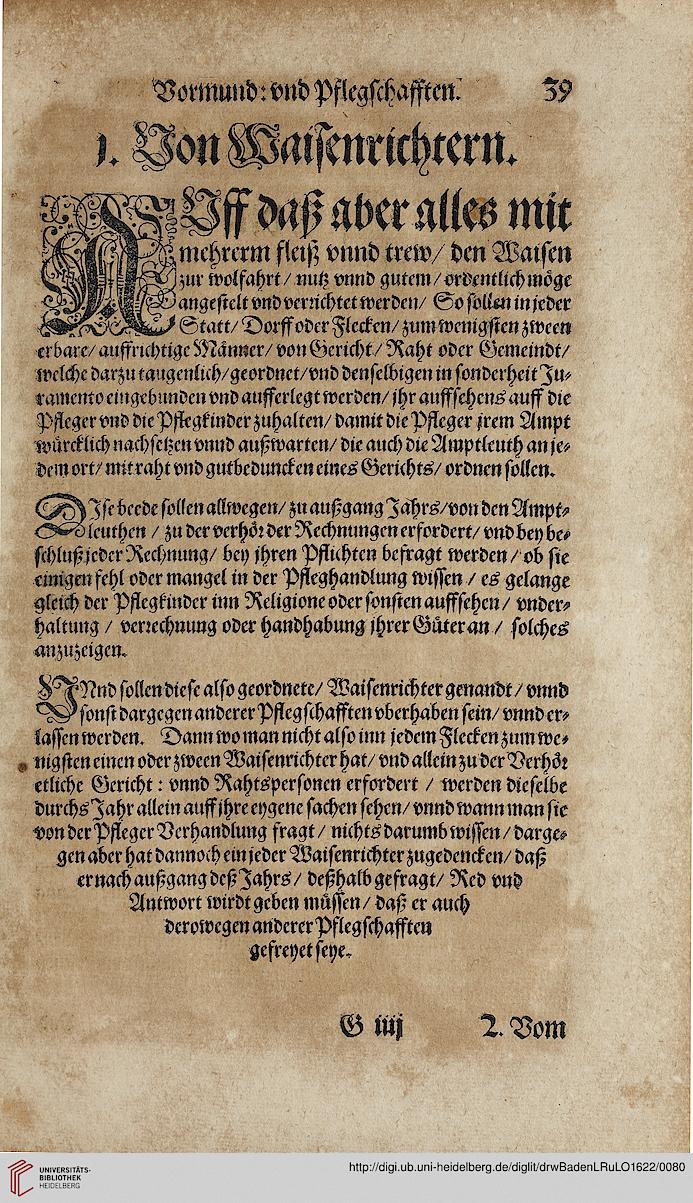 Vormund: vnd Pflegschafften. 39
1. Von Waisenrichtern.
AUff daß aber alles mit
mehrerm fleiß vnnd trew/ den Waisen
zur wolfahrt/ nutz vnnd gutem/ ordentlich möge
angestelt vnd verrichtet werden/ So sollen in jeder
Statt/ Dorff oder Flecken/ zum wenigsten zween
erbare/ auffrichtige Männer/ von Gericht/ Raht oder Gemeindt/
welche darzu taugenlich/ geordnet/ vnd denselbigen in sonderheit Ju-
ramento eingebunden vnd aufferlegt werden/ jhr auffsehens auff die
Pfleger vnd die Pflegkinder zuhalten/ damit die Pfleger jrem Ampt
würcklich nachsetzen vnnd außwarten/ die auch die Amptleuth an je-
dem ort/ mit raht vnd gutbeduncken eines Gerichts/ ordnen sollen.
DIse beede sollen allwegen/ zu außgang Jahrs/ von den Ampt-
leuthen / zu der verhör der Rechnungen erfordert/ vnd bey be-
schluß jeder Rechnung/ bey jhren Pflichten befragt werden / ob sie
einigen fehl oder mangel in der Pfleghandlung wissen / es gelange
gleich der Pflegkinder inn Religione oder sonsten auffsehen / vnder-
haltung / verrechnung oder handhabung jhrer Güter an / solches
anzuzeigen.
VNnd sollen diese also geordnete/ Waisenrichter genandt / vnnd
sonst dargegen anderer Pflegschafften vberhaben sein/ vnnd er-
lassen werden. Dann wo man nicht also inn jedem Flecken zum we-
nigsten einen oder zween Waisenrichter hat/ vnd allein zu der Verhör
etliche Gericht: vnnd Rahtspersonen erfordert / werden dieselbe
durchs Jahr allein auff jhre eygene sachen sehen/ vnnd wann man sie
von der Pfleger Verhandlung fragt / nichts darumb wissen / darge-
gen aber hat dannoch ein jeder Waisenrichter zugedencken/ daß
er nach außgang deß Jahrs / deßhalb gefragt/ Red vnd
Antwort wirdt geben müssen / daß er auch
derowegen anderer Pflegschafften
gefreyet seye.
G iiij 2. Vom
UNIVERSITÄTS-
BIBLIOTHEK
HEIDELBERG
http://digi.ub.uni-heidelberg.de/diglit/drwBadenLRuLO1622/0080